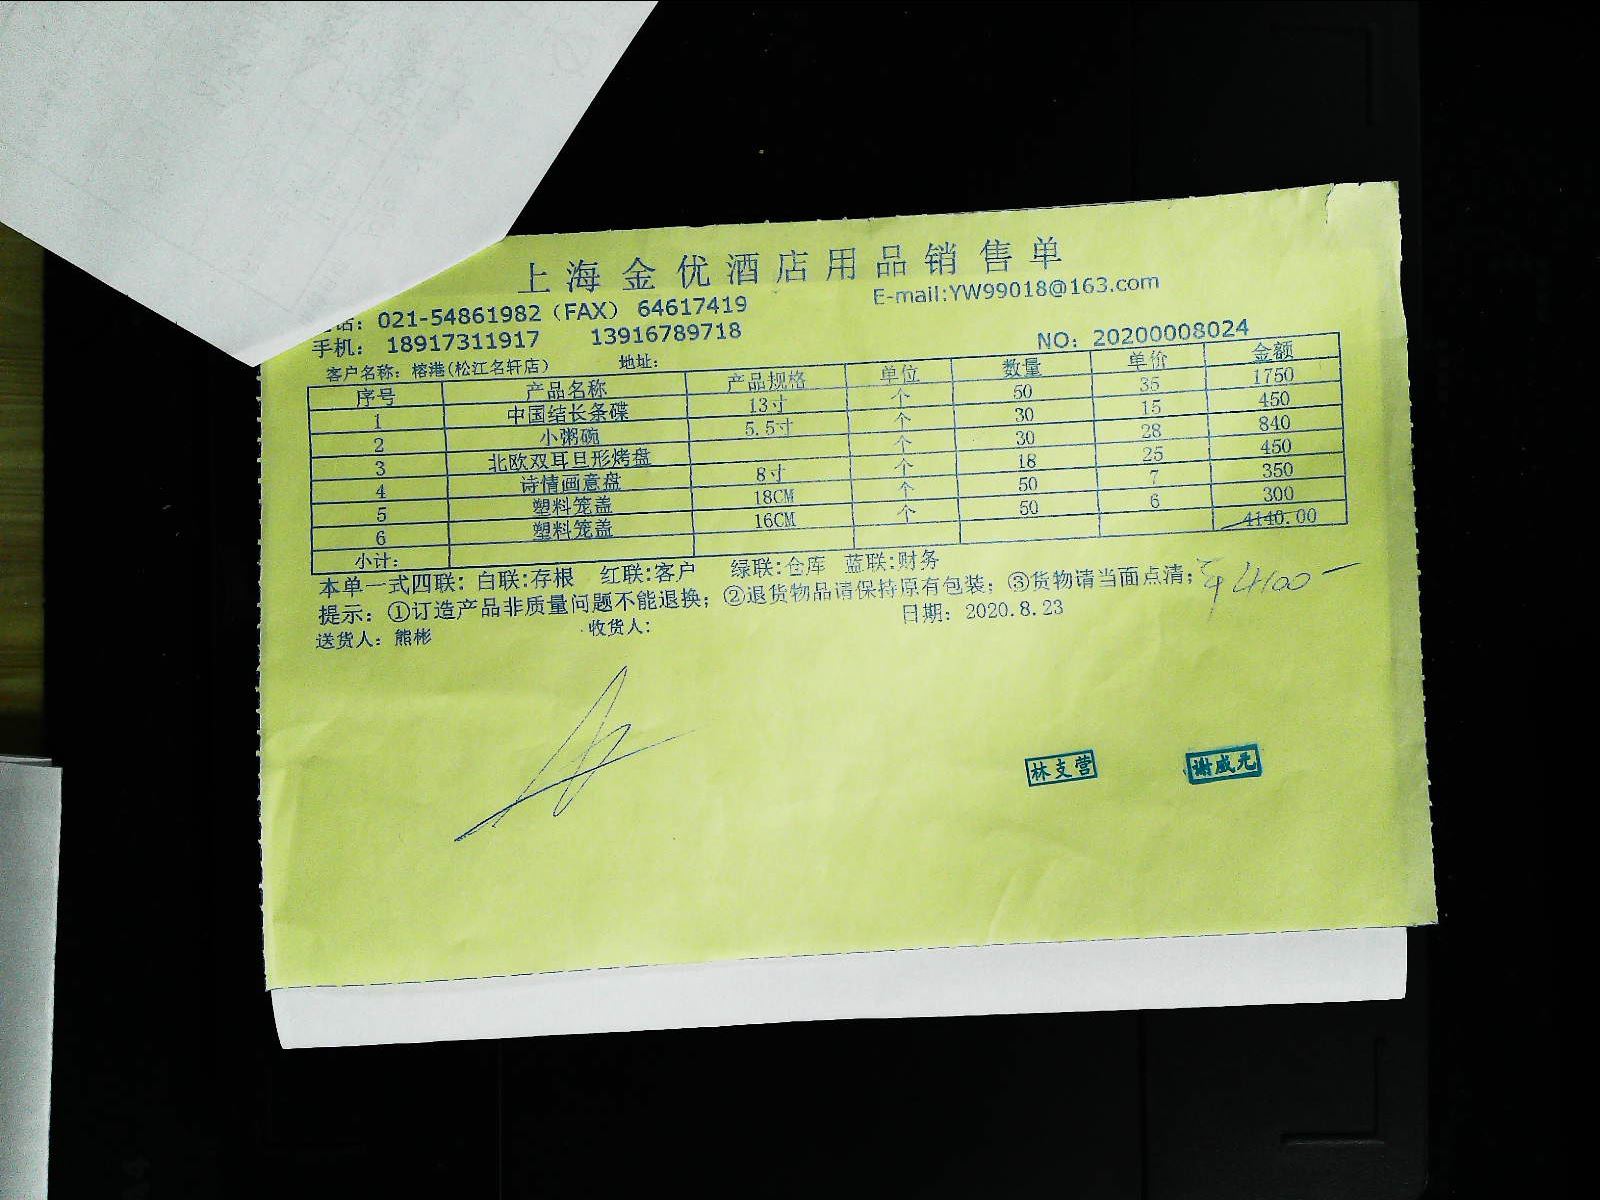 上海金优酒店用品销售单
话：021-54861982（FAX） 64617419 E-mail:YW99018@163.com
手机： 18917311917 13916789718 NO：20200008024
客户名称：榕港(松江名轩店) 地址：
序号 产品名称 产品规格 单位 数量 单价 金额
1 中国结长条碟 13寸 个 50 35 1750
2 小粥碗 5.5寸 个 30 15 450
3 北欧双耳旦形烤盘 个 30 28 840
4 诗情画意盘 8寸 个 18 25 450
5 塑料笼盖 18CM 个 50 7 350
6 塑料笼盖 16CM 个 50 6 300
小计： 4140.00
本单一式四联：白联:存根 红联:客户 绿联:仓库 蓝联:财务
提示：①订造产品非质量问题不能退换；②退货物品请保持原有包装；③货物请当面点清； 4100-
送货人：熊彬 收货人: 日期：2020.8.23
林支营 谢威元